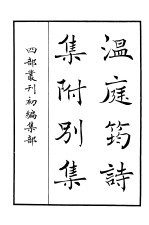 溫庭筠詩
集附別集
四部叢刊初編集部